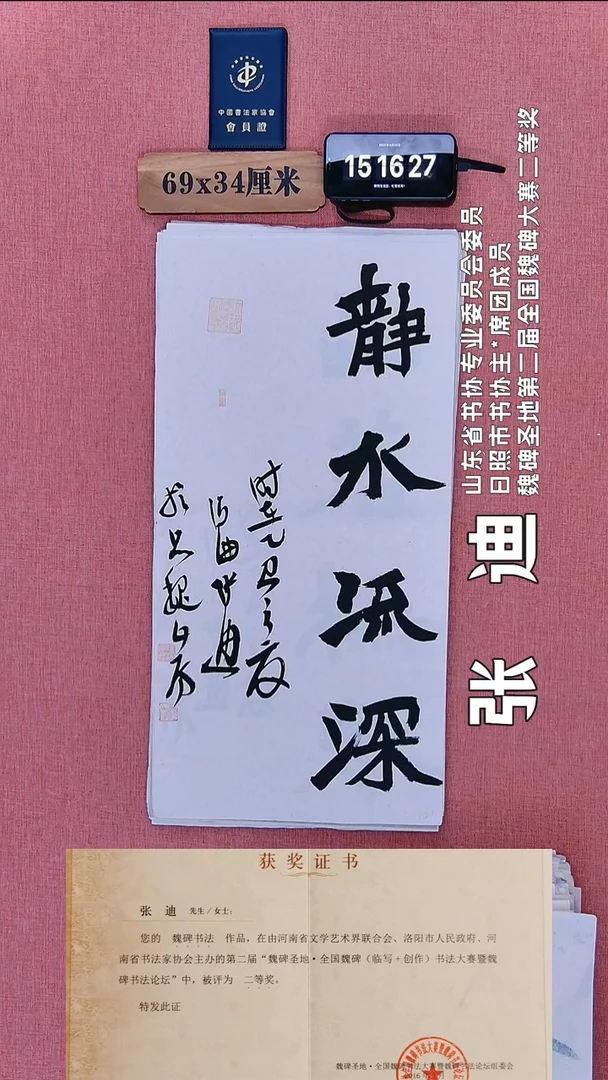 中國書法家協會
會員證
69x34厘米
15 16 27
静水流深
时在乙巳之夏
张迪
山东省书协专业委员会委员
日照市书协主*席团成员
魏碑圣地第二届全国魏碑大赛二等奖
获奖证书
张 迪 先生/女士:
您的 魏碑书法 作品,在由河南省文学艺术界联合会、洛阳市人民政府、河
南省书法家协会主办的第二届“魏碑圣地·全国魏碑(临写+创作)书法大赛暨魏
碑书法论坛”中,被评为 二等奖。
特发此证
魏碑圣地·全国魏碑书法大赛暨魏碑书法论坛组委会